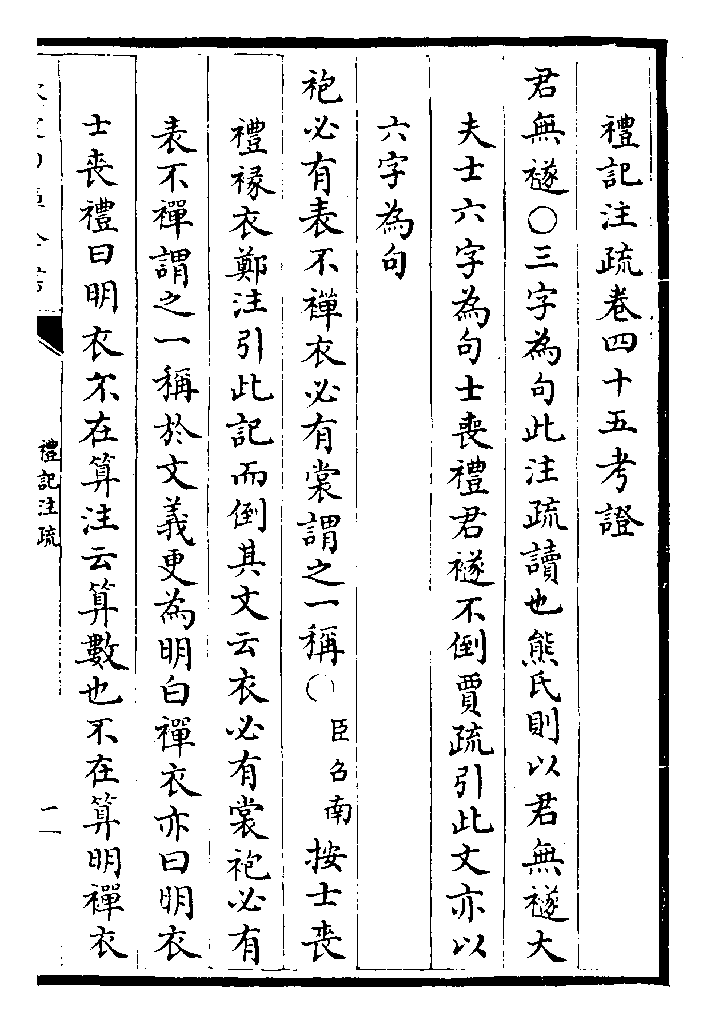 禮記注疏卷四十五考證
君無襚○三字為句此注疏讀也熊氏則以君無襚大
夫士六字為句士喪禮君襚不倒賈疏引此文亦以
六字為句
袍必有表不襌衣必有裳謂之一稱○臣召南按士喪
禮褖衣鄭注引此記而倒其文云衣必有裳袍必有
表不襌謂之一稱於文義更為明白襌衣亦曰明衣
士喪禮曰明衣不在算注云算數也不在算明襌衣
禮記注疏